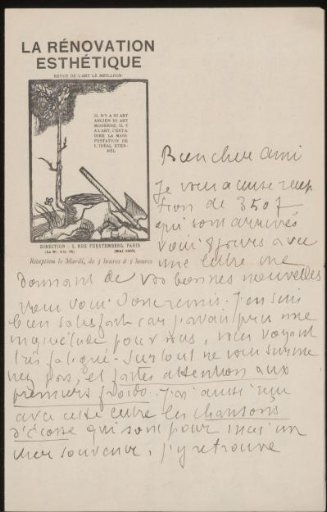 LA RÉNOVATION
ESTHÉTIQUE
REVUE DE L'ART LE MEILLEUR
IL N'Y A NI ART
ANCIEN NI ART
MODERNE, IL Y
A L'ART, C'EST A
DIRE LA MANI
FESTATION DE
L'IDÉAL ÉTER
NEL
DIRECTION : 3, RUE FURSTEMBERG, PARIS
Réception le Mardi, de 3 heures à 5 heures
Bien cher ami
Je vous accuse récep
tion de 350 f
qui sont arrivés
voici 8 jours avec
une lettre me
donnant de vos bonnes nouvelles
J'en suis
bien satisfait car j'avais pris une
inquiétude pour vous, vous voyant
très fatigué. Surtout ne vous surme
nez pas, et faites attention aux
premiers froids. J'ai aussi reçu
avec cette lettre les chansons
d'écosse qui sont pour moi un
cher souvenir, j'y retrouve